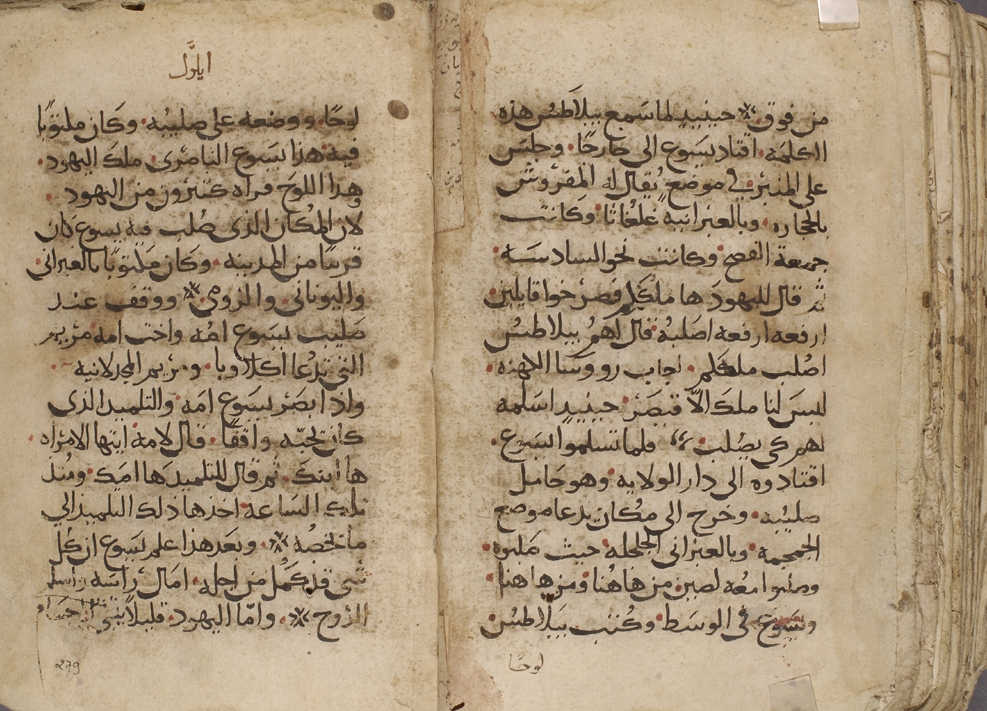 من فوق ※ حينيذٍ لما سمع بيلاطس هذه
الكلمة. اقتاد يسوع الى خارجًا. وجلس
على المنبر في موضع يُقال له المفروش
بالحجاره. وبالعبرانيه غلغاثا. وكانت
جمعة الفصح. وكانت نحو السادسة
ثم قال لليهود ها ملككم فصرخوا قايلين
ارفعه ارفعه اصلبه قال لهم بيلاطس
اصلب ملككم. اجاب رووسا الكهنه.
ليس لنا ملك الّا قيصر. حينيذٍ اسلمه
لهم كي يصلب. فلما تسلموا يسوع.
اقتادوه الى دار الولايه. وهو حامل
صليبه. وخرج الى مكان يدعا موضع
الجمجمة. وبالعبراني الجلجلة حيث صلبوه.
وصلبوا معه لصين. من هاهُنا ومن هاهنا.
ويسوع في الوسط. وكتب بيلاطس
لوحًا
ايلوَّل
لوحًا. ووضعه على صليبه. وكان مكتوبًا
فيه هذا يسوع الناصري. ملك اليهود.
وهذا اللوح قراه كثيرون من اليهود.
لان المكان الذي صُلب فيه يسوع كان
قريبًا من المدينه. وكان مكتوبًا بالعبراني.
واليوناني. والرومي ※ ووقف عند
صليب يسوع امُه واخت امه مريم
التي تدعا اكلاوبا. ومريم المجدلانية.
واذ ابصر يسوع امَه. والتلميذ الذي
كان يحبّه واقفًا. قال لامه ايتها الامراه
ها ابنك. ثم قال للتلميذ ها امك. ومنذ
تلك الساعة. اخذها ذلك التلميذ الي
ما يخصُه ※. وبعد هذا علم يسوع ان كُل
شي قد كمُل من اجله. امال راسَه واسلم
الرُوح ※. وامّا اليهود.
279